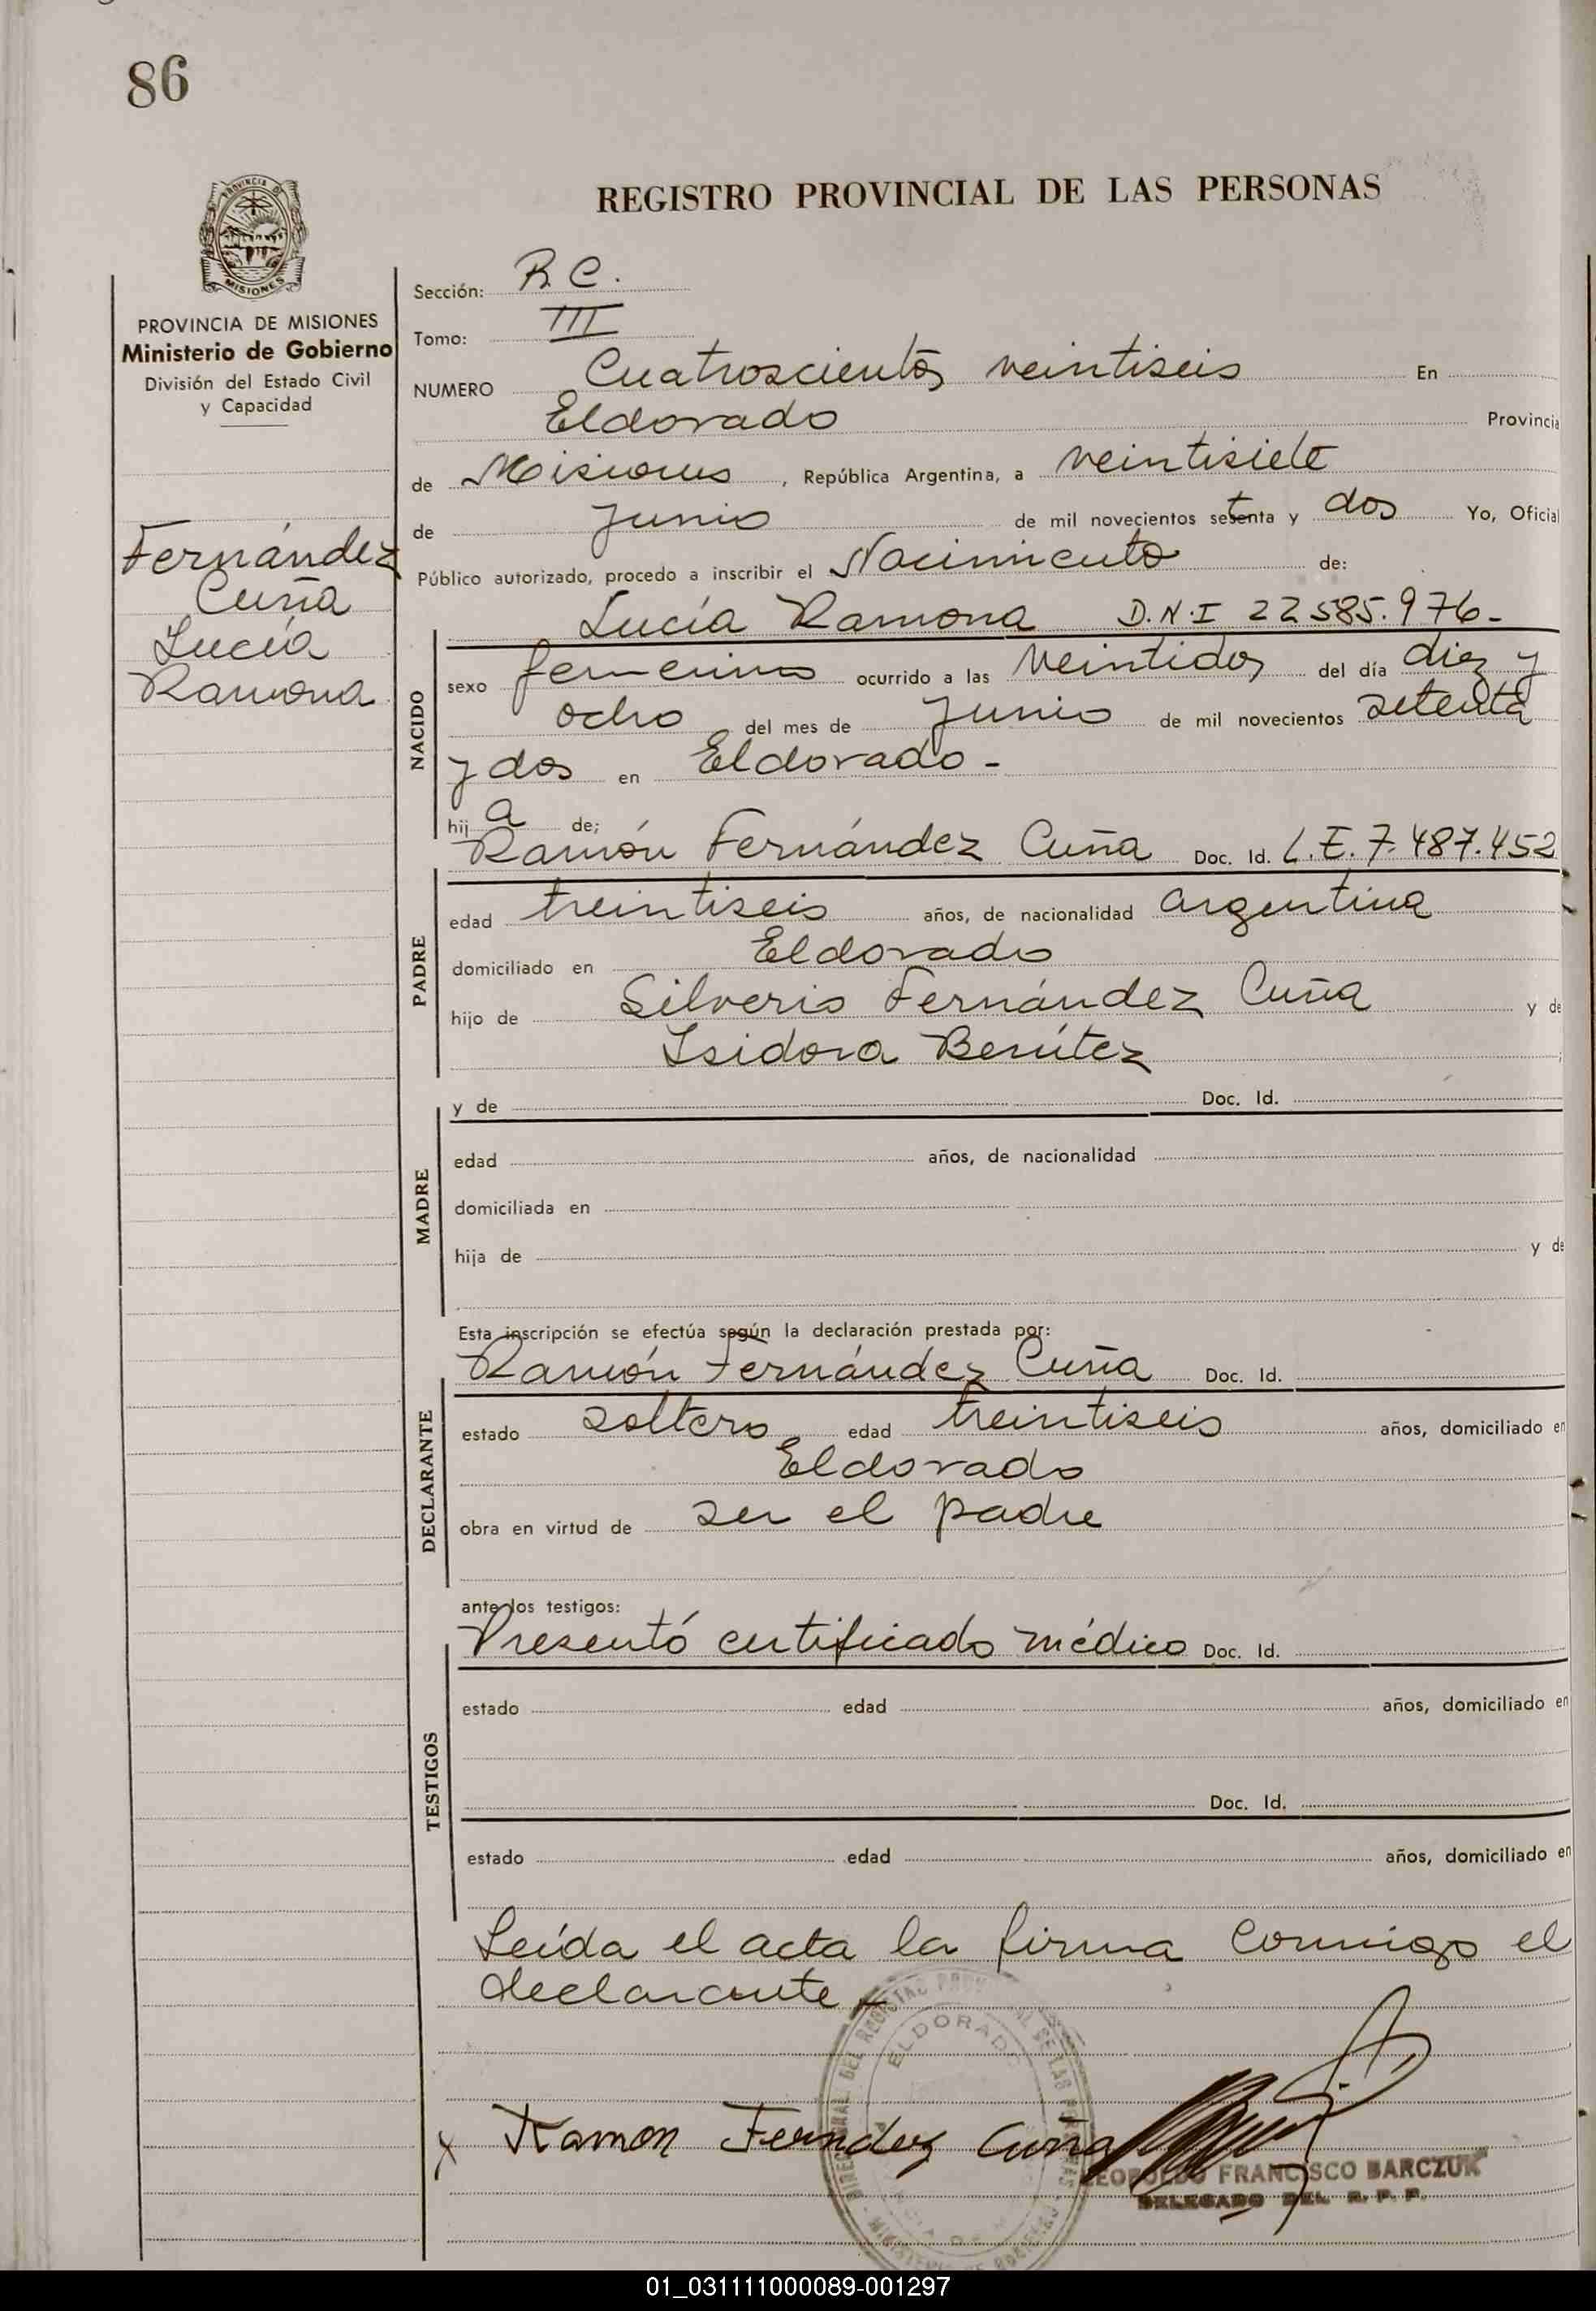 86
REGISTRO PROVINCIAL DE LAS PERSONAS
PROVINCIA DE
MISIONES
PROVINCIA DE MISIONES
Ministerio de Gobierno
División del Estado Civil
y Capacidad
Fernández
Cuña
Lucía
Ramona
Sección: R C.
Tomo: III
NUMERO Cuatroscientos veintiseis En
Eldorado Provincia
de Misiones, República Argentina, a veintisiete
de Junio de mil novecientos setenta y dos Yo, Oficial
Público autorizado, procedo a inscribir el Nacimiento de:
Lucía Ramona D.N.I 22585.976-
NACIDO
sexo femenino ocurrido a las veintidos del día diez y
ocho del mes de Junio de mil novecientos setenta
y dos en Eldorado-
hij a de;
Ramón Fernández Cuña Doc. Id. L.E. 7.487.452
PADRE
edad treintiseis años, de nacionalidad argentina
domiciliado en Eldorado
hijo de Silverio Fernández Cuña y de
Isidora Benítez
MADRE
y de Doc. Id.
edad años, de nacionalidad
domiciliada en
hija de y de
Esta inscripción se efectúa según la declaración prestada por:
Ramón Fernández Cuña Doc. Id.
DECLARANTE
estado soltero edad treintiseis años, domiciliado en
Eldorado
obra en virtud de ser el padre
ante los testigos:
Presentó certificado médico Doc. Id.
TESTIGOS
estado edad años, domiciliado en
Doc. Id.
estado edad años, domiciliado en
Leída el acta la firma conmigo el
declarante
ELDORADO
x Ramon Ferndez Cuña
LEOPOLDO FRANCISCO BARCZUK
DELEGADO DEL R. P. P.
01_031111000089-001297